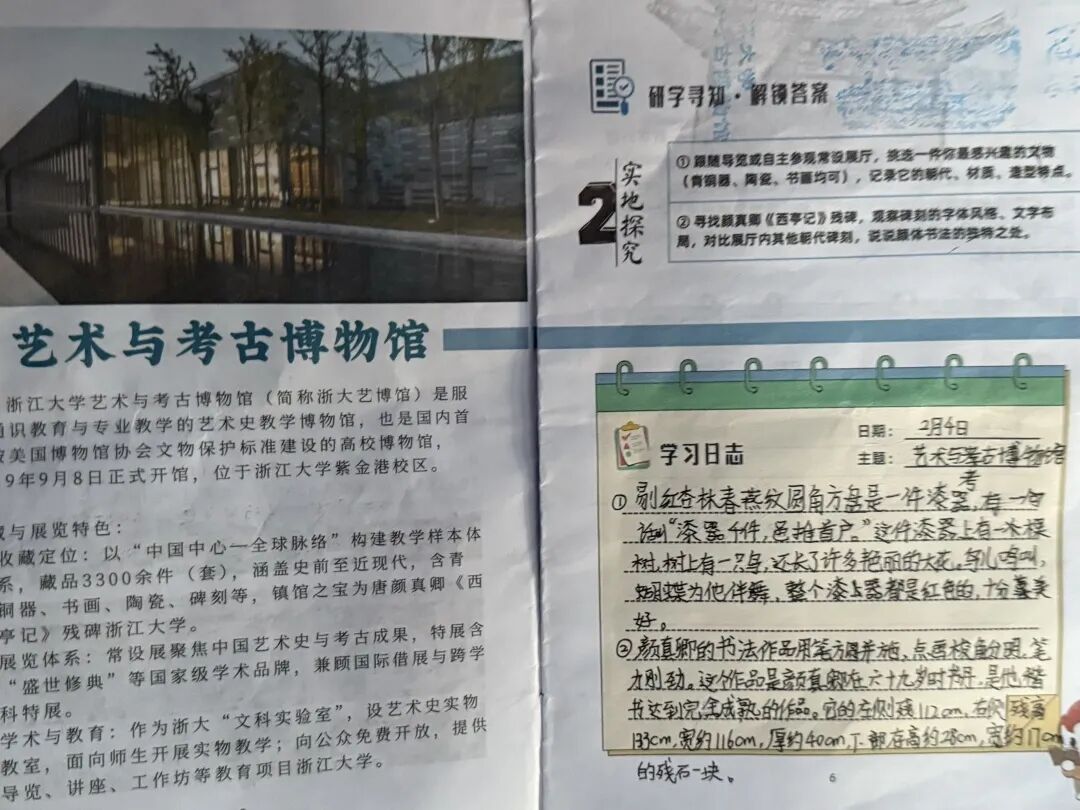 艺术与考古博物馆
浙江大学艺术与考古博物馆（简称浙大艺博馆）是服
通识教育与专业教学的艺术史教学博物馆，也是国内首
美国博物馆协会文物保护标准建设的高校博物馆，
9年9月8日正式开馆，位于浙江大学紫金港校区。
与展览特色：
收藏定位：以“中国中心—全球脉络”构建教学样本体
系，藏品3300余件（套），涵盖史前至近现代，含青
铜器、书画、陶瓷、碑刻等，镇馆之宝为唐颜真卿《西
亭记》残碑浙江大学。
展览体系：常设展聚焦中国艺术史与考古成果，特展含
“盛世修典”等国家级学术品牌，兼顾国际借展与跨学
科特展。
学术与教育：作为浙大“文科实验室”，设艺术史实物
教室，面向师生开展实物教学；向公众免费开放，提供
导览、讲座、工作坊等教育项目浙江大学。
研学寻知·解锁答案
2
实地探究
①跟随导览或自主参观常设展厅，挑选一件你最感兴趣的文物
（青铜器、陶瓷、书画均可），记录它的朝代、材质、造型特点。
②寻找颜真卿《西亭记》残碑，观察碑刻的字体风格、文字布
局，对比展厅内其他朝代碑刻，说说颜体书法的独特之处。
学习日志
日期：2月4日
主题：艺术与考古博物馆
考
①剔红杏林春燕纹圆角方盘是一件漆器，有一句
“漆器千件，色推首户。”这件漆器上有一木棵
树，树上有一只鸟，还长了许多艳丽的大花。鸟儿鸣叫，
蝴蝶为他伴舞，整个漆器都是红色的，十分美
好。
②颜真卿的书法作品用笔方圆并施，点画棱角分明，笔
力刚劲。这个作品是颜真卿在六十九岁时书丹，是他楷
书达到完全成熟的作品。它的左侧残112cm，右侧残高
133cm，宽约116cm，厚约40cm，下部存高约28cm，宽约17cm
的残石一块。
6